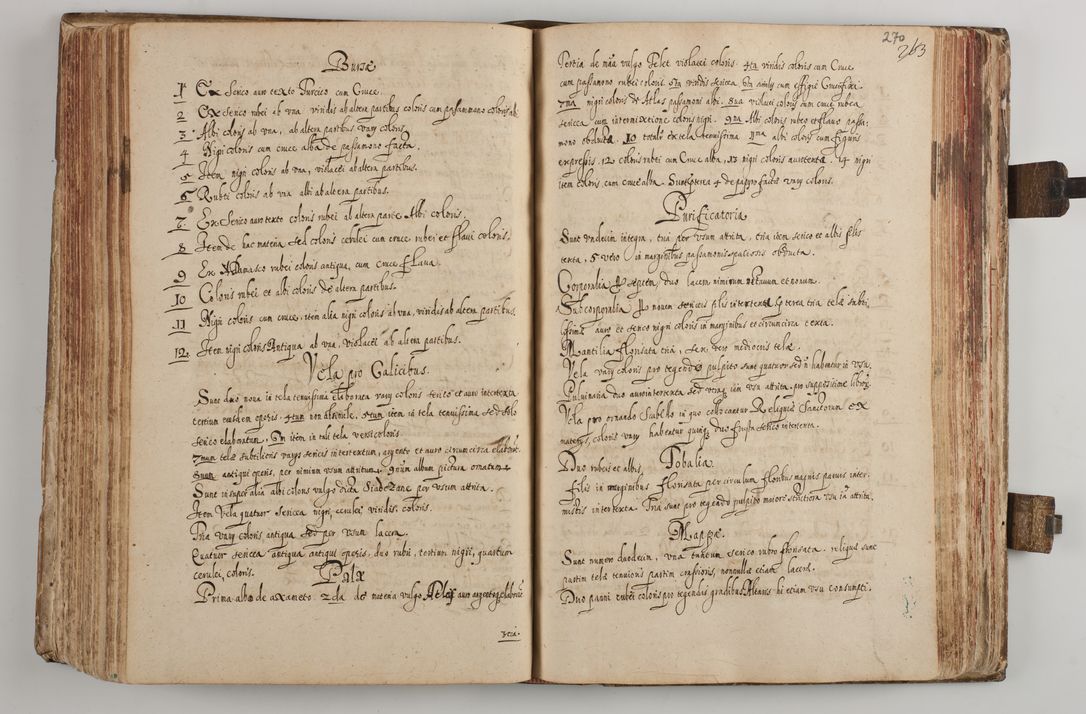 Bursæ
1 Ex Serico auro texto Turcico cum Cruce.
2 Ex Serico rubei ab vna viridis ab altera partibus coloris cum passammono coloris alb.
3 Albi coloris ab vna, ab altera partibus varÿ coloris.
4 Nigri coloris cum cruce alba de passamono facta.
5 Item nigri coloris ab vna, violacei ab altera partibus.
6 Rubei coloris ab vna albi ab altera partibus.
7. Ex Serico auro texto coloris rubei ab altera parte Albi coloris.
8 Item de hac materia sed coloris cerulei cum cruce rubei et flaui coloris.
9 Ex Adamasco rubei coloris antiqua, cum cruce flaua.
10 Coloris rubei et albi coloris de altera partibus.
11 Nigri coloris cum cruce, item alia nigri coloris ab vna, viridis ab altera partibus.
12. Item nigri coloris Antiqua ab vna, violacei ab altera partibus.
Vela pro Calicibus.
Sunt duo noua in tela tenuissima elaborata varÿ coloris serico et auro intertexta
tertium eiusdem operis. 4tum non dissimile. 5tum item in tela tenuissima sed solo
serico elaboratum. 6m item in tali tela versicoloris
7mum telæ subtilioris varÿs sericis intertextum, argento et auro circumcirca elabor.
8uum antiqui operis, per nimium vsum attritum. 9num album pictura ornatum
Sunt insuper alia albi coloris vulgo dicta per vsum attrita.
Item Vela quatuor Sericea nigri, cerulei, viridis, coloris.
Tria varÿ coloris, antiqua sed per vsum lacera.
Quatuor sericea antiqua antiqui operis, duo rubri, tertium nigri, quartum
cerulei, coloris.
Palæ
Prima alba de axameto. 2da de materia vulgo auro argentoq elaborata
3tia.
270
263
Tertia de mãa vulgo Telet violacei coloris. 4ta viridis coloris cum Cruce
cum passamono rubei coloris. 5ta viridis sericea. 6ta similis cum effigie Crucifixi.
7ma nigri coloris de Atlas passamoni albi. 8ua violacei coloris cum cruce rubea
sericea cum intermixtione coloris nigri. 9na Albi coloris rubeo et flauo passa-
mono obducta. 10 totalr ex tela tenuissima 11ma albi coloris cum figuris
expressis. 12a coloris rubei cum Cruce alba, 13 nigri coloris auro texta. 14 nigri
item coloris, cum cruce alba. Sunt pterea 4 de papyro factæ varÿ coloris.
Purificatoria
Sunt vndecim integra, tria per vsum attrita, tria item serico et albis filis
texta, 5 vero in marginibus passamonis obducta.
Corporalia septem, duo lacera nimirum octauum et nonum.
Subcorporalia nouem sericeis filis intertexta pterea tria telæ subti-
lissimæ auro et serico nigri coloris in marginibus et circumcirca texta.
Mantilia florisata tria, sex vero mediocris telæ.
Vela varÿ coloris pro tegendo pulpito sunt quatuor sed n habentur in vsu.
Puluinaria duo auro intertexta sed vtraq iam vsu attrita. pro suppositione librorum
Vela pro ornando scabello in quo collocantur Reliquiæ Sanctorum ex
materÿs, coloris varÿ habentur quinq, duo serico intertexta.
Tobalia.
Duo rubeis et albis,
filis in marginibus florisata per circulum floribus magnis paruis inter-
mistis intertexta. Tria sunt pro tegendo pulpito maiore structiora vsu iã attrita.
Mappæ.
Sunt numero duodecim, vna tantum serico rubro florisata. reliquæ sunt
partim telæ tenuioris partim crassioris, nonnullæ etiam laceræ.
Duo panni rubei coloris pro tegendis gradibus Altaris hi etiam vsu consumpti.